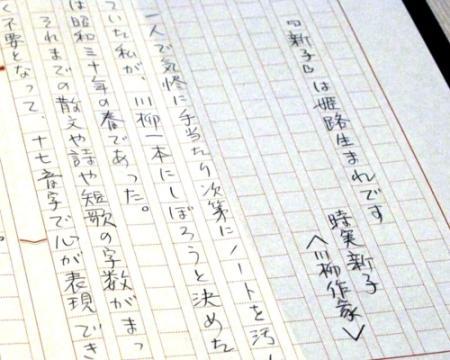 「新子」は姫路生まれです
時実新子
〈川柳作家〉
一人で気侭に手当たり次第にノートを汚し
ていた私が、川柳一本にしぼろうと決めた
は昭和三十年の春であった。
それまでの散文や詩や短歌の字数がまっ
く不要となって、十七音字で心が表現でき
。